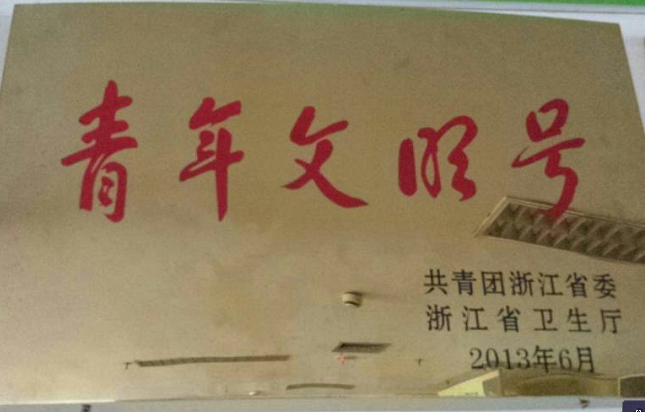 青年文明号
共青团浙江省委
浙江省卫生厅
2013年6月